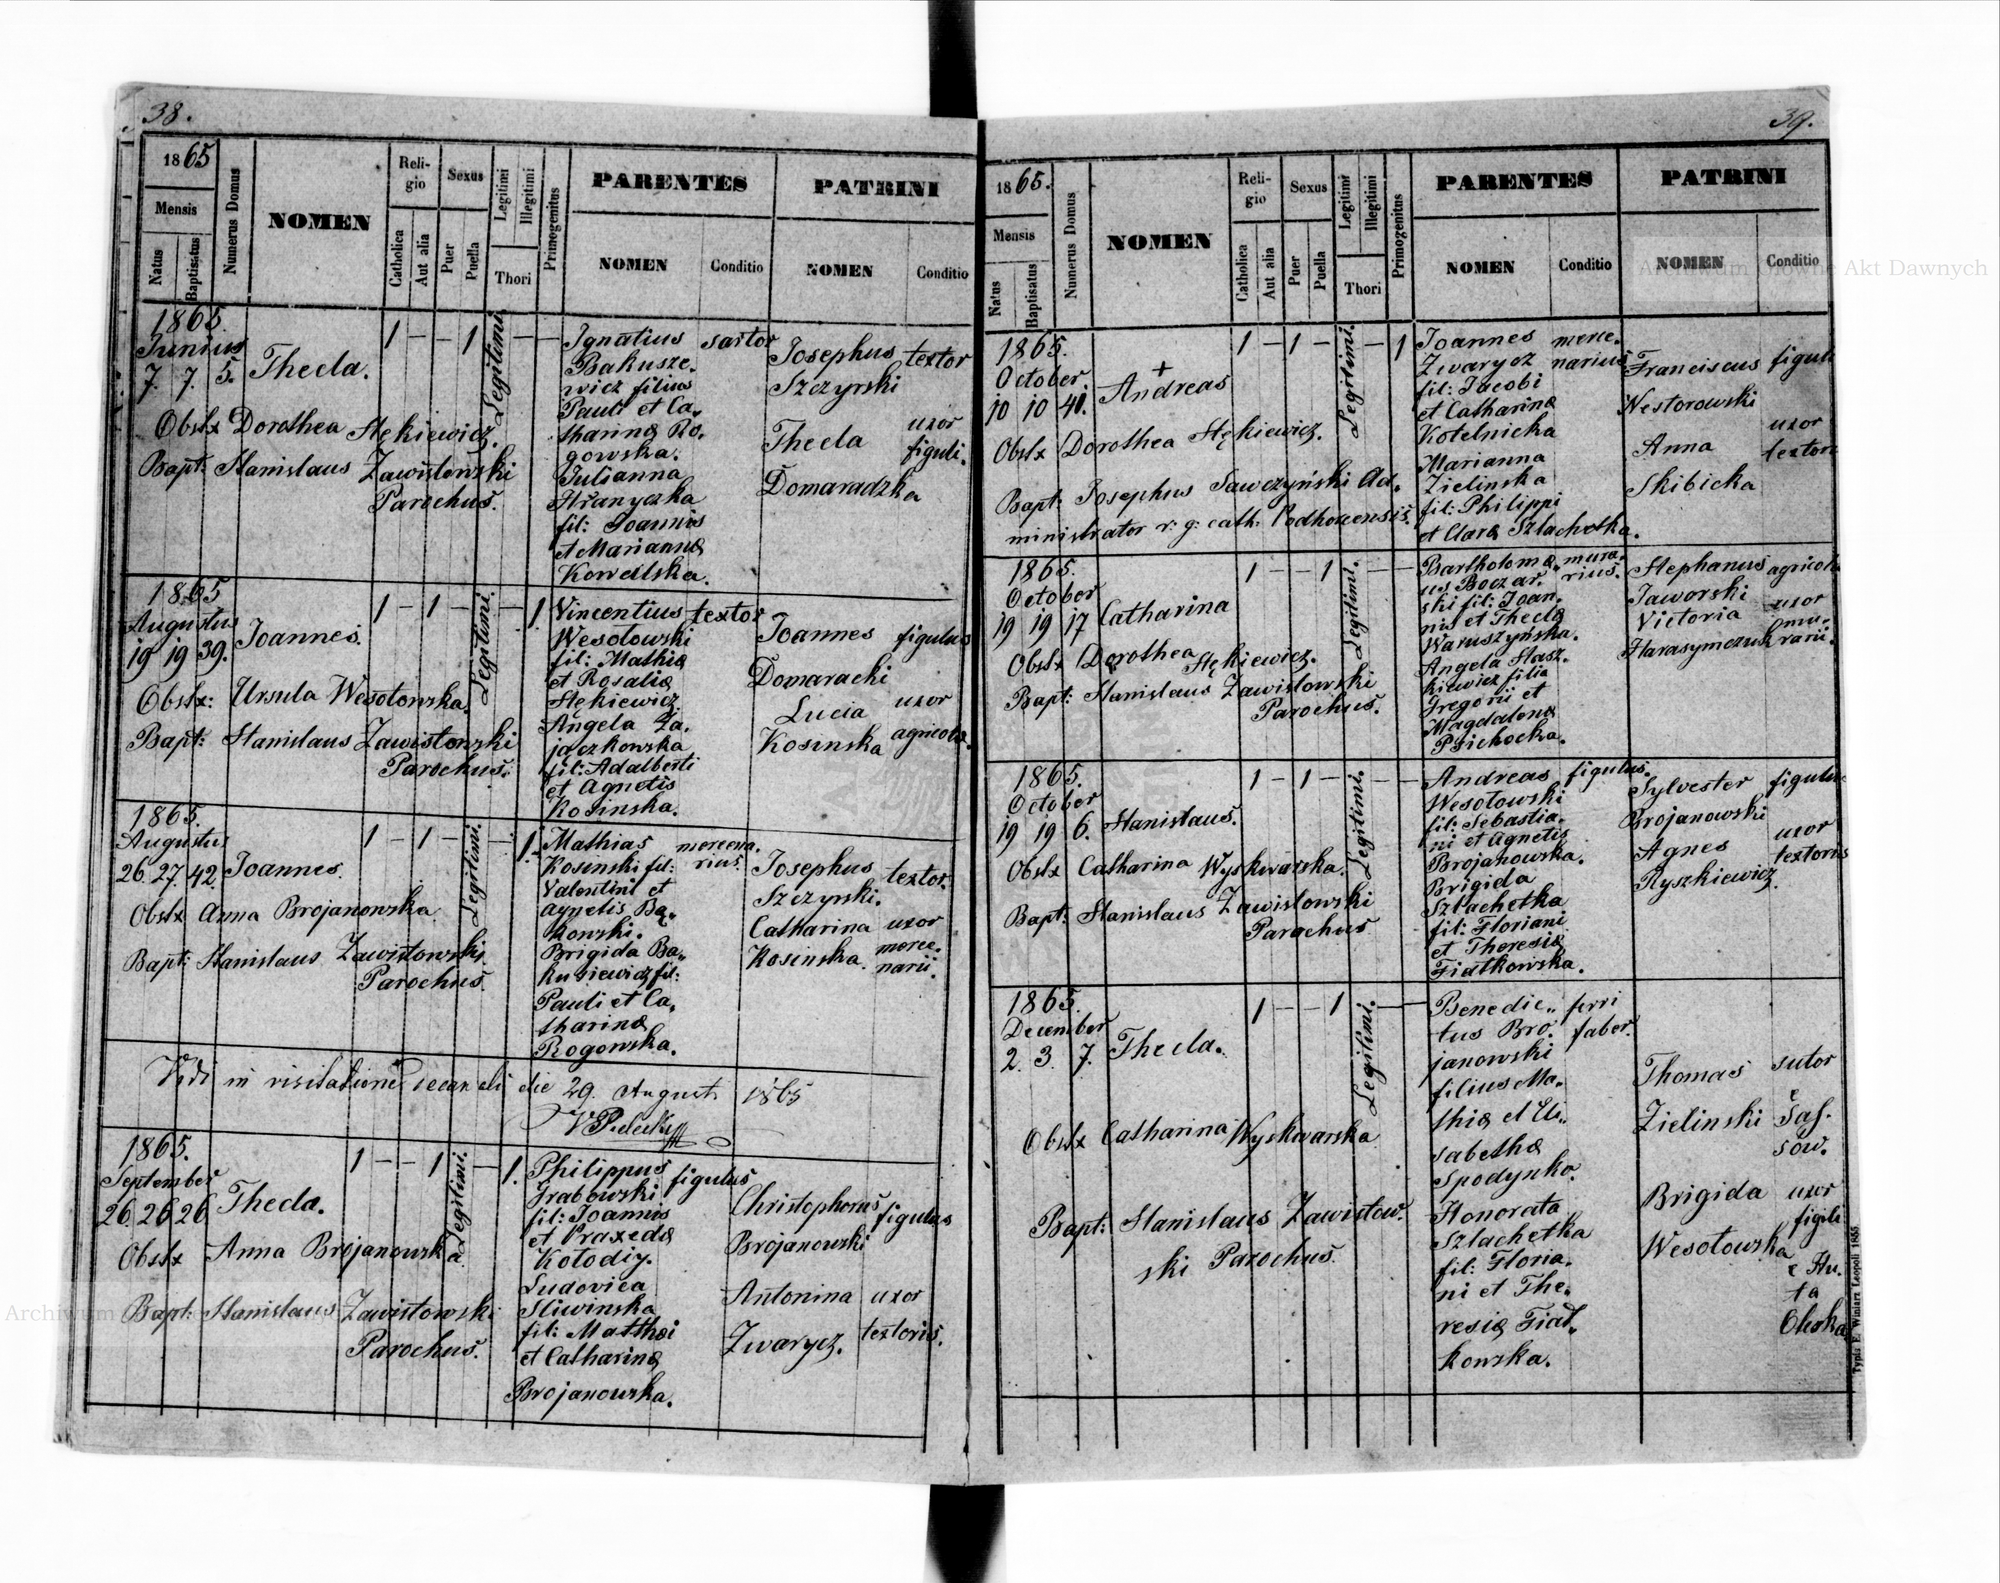 38.
1865
Mensis
Natus
Baptisatus
Numerus Domus
NOMEN
Reli-
gio
Catholica
Aut alia
Sexus
Puer
Puella
Legitimi
Illegitimi
Thori
Primogenitus
PARENTES
NOMEN
Conditio
PATRINI
NOMEN
Conditio
1865.
Junius
7. 7. 5. Thecla.
1 – – 1 Legitimi. –
Obstx Dorothea Stękiewicz.
Bapt: Stanislaus Zawistowski
Parochus.
Ignatius sartor
Bakusze-
wicz filius
Pauli et Ca-
tharinæ Ro-
gowska.
Julianna
Hranyczka
fil: Joannis
et Mariannæ
Kowalska.
Josephus textor
Szczyrski
Thecla uxor
figuli.
Domaradzka
1865
Augustus
19 19 39. Joannes.
1 – 1 – Legitimi. – 1
Obstx: Ursula Wesołowska.
Bapt: Stanislaus Zawistowski
Parochus.
Vincentius textor
Wesołowski
fil: Mathiæ
et Rosaliæ
Stękiewicz.
Angela Za-
jączkowska
fil: Adalberti
et Agnetis
Kosinska.
Joannes figulus
Domaracki
Lucia uxor
Kosinska agricolæ.
1865.
Augustus
26. 27. 42. Joannes.
1 – 1 – Legitimi. – 1.
Obstx Anna Brojanowska
Bapt: Stanislaus Zawistowski.
Parochus.
Mathias mercena-
Kosinski fil: rius.
Valentini et
Agnetis Bą-
kowski.
Brigida Ba-
kusiewicz fil:
Pauli et Ca-
tharinæ
Rogowska.
Josephus textor.
Szczyrski.
Catharina uxor
Kosinska. merce-
narii.
Vidi in visitatione decanali die 29. August 1865
1865.
September
26. 26 26 Thecla.
1 – – 1 Legitimi. – 1.
Obstx Anna Brojanowska
Bapt: Stanislaus Zawistowski
Parochus.
Philippus figulus
Grabowski
fil: Joannis
et Praxedæ
Kołodiy.
Ludovica
Sliwinska
fil: Matthæi
et Catharinæ
Brojanowska.
Christophorus figulus
Brojanowski
Antonina uxor
Zwarycz. textoris.
39.
1865.
Mensis
Natus
Baptisatus
Numerus Domus
NOMEN
Reli-
gio
Catholica
Aut alia
Sexus
Puer
Puella
Legitimi
Illegitimi
Thori
Primogenitus
PARENTES
NOMEN
Conditio
PATRINI
NOMEN
Conditio
1865.
October
10 10 41. Andreas
1 – 1 – Legitimi. – 1
Obstx Dorothea Stękiewicz.
Bapt: Josephus Sawczyński Ad-
ministrator r: g: cath: Podhorcensis.
Joannes merce-
Zwarycz narius
fil: Jacobi
et Catharinæ
Kotelnicka
Marianna
Zielinska
fil: Philippi
et Claræ Szlachetka.
Franciscus
Nestorowski
Anna uxor
Skibicka
1865.
October
19 19 17 Catharina
1 – – 1 Legitimi. – –
Obstx Dorothea
Stękiewicz.
Bapt: Stanislaus Zawistowski
Parochus.
Bartholomæ- mura-
us Boczar- rius.
ski fil: Joan-
nis et Theclæ
Waruszyńska.
Angela Stasz-
kiewicz filia
Gregorii et
Magdalenæ
Psichocka.
Stephanus
Jaworski
Victoria uxor
mu-
Harasymczuk rarii.
1865.
October
19 19 6. Stanislaus.
1 – 1 – Legitimi. – –
Obstx Catharina Wyskwarska.
Bapt: Stanislaus Zawistowski
Parochus
Andreas figulus.
Wesołowski
fil: Sebastia-
ni et Agnetis
Brojanowska.
Brigida
Szlachetka
fil: Floriani
et Theresiæ
Fiałkowska.
Sylvester
Brojanowski
Agnes uxor
textoris
Ryszkiewicz.
1865.
December
2. 3. 7. Thecla.
1 – – 1 Legitimi. –
Obstx Catharina Wyskwarska
Bapt: Stanislaus Zawistow-
ski Parochus.
Benedic- ferri
tus Bro- faber.
janowski
filius Ma-
thiæ et Eli-
sabethæ
Spodynko.
Honorata
Szlachetka
fil: Floria-
ni et The-
resiæ Fiał-
kowska.
Thomas sutor
Zielinski Sas-
sów.
Brigida uxor
figuli
Wesołowska
e Hu-
ta
Oleska
Typis E. Winiarz Leopoli 1855
Akt Dawnych
Archiwum